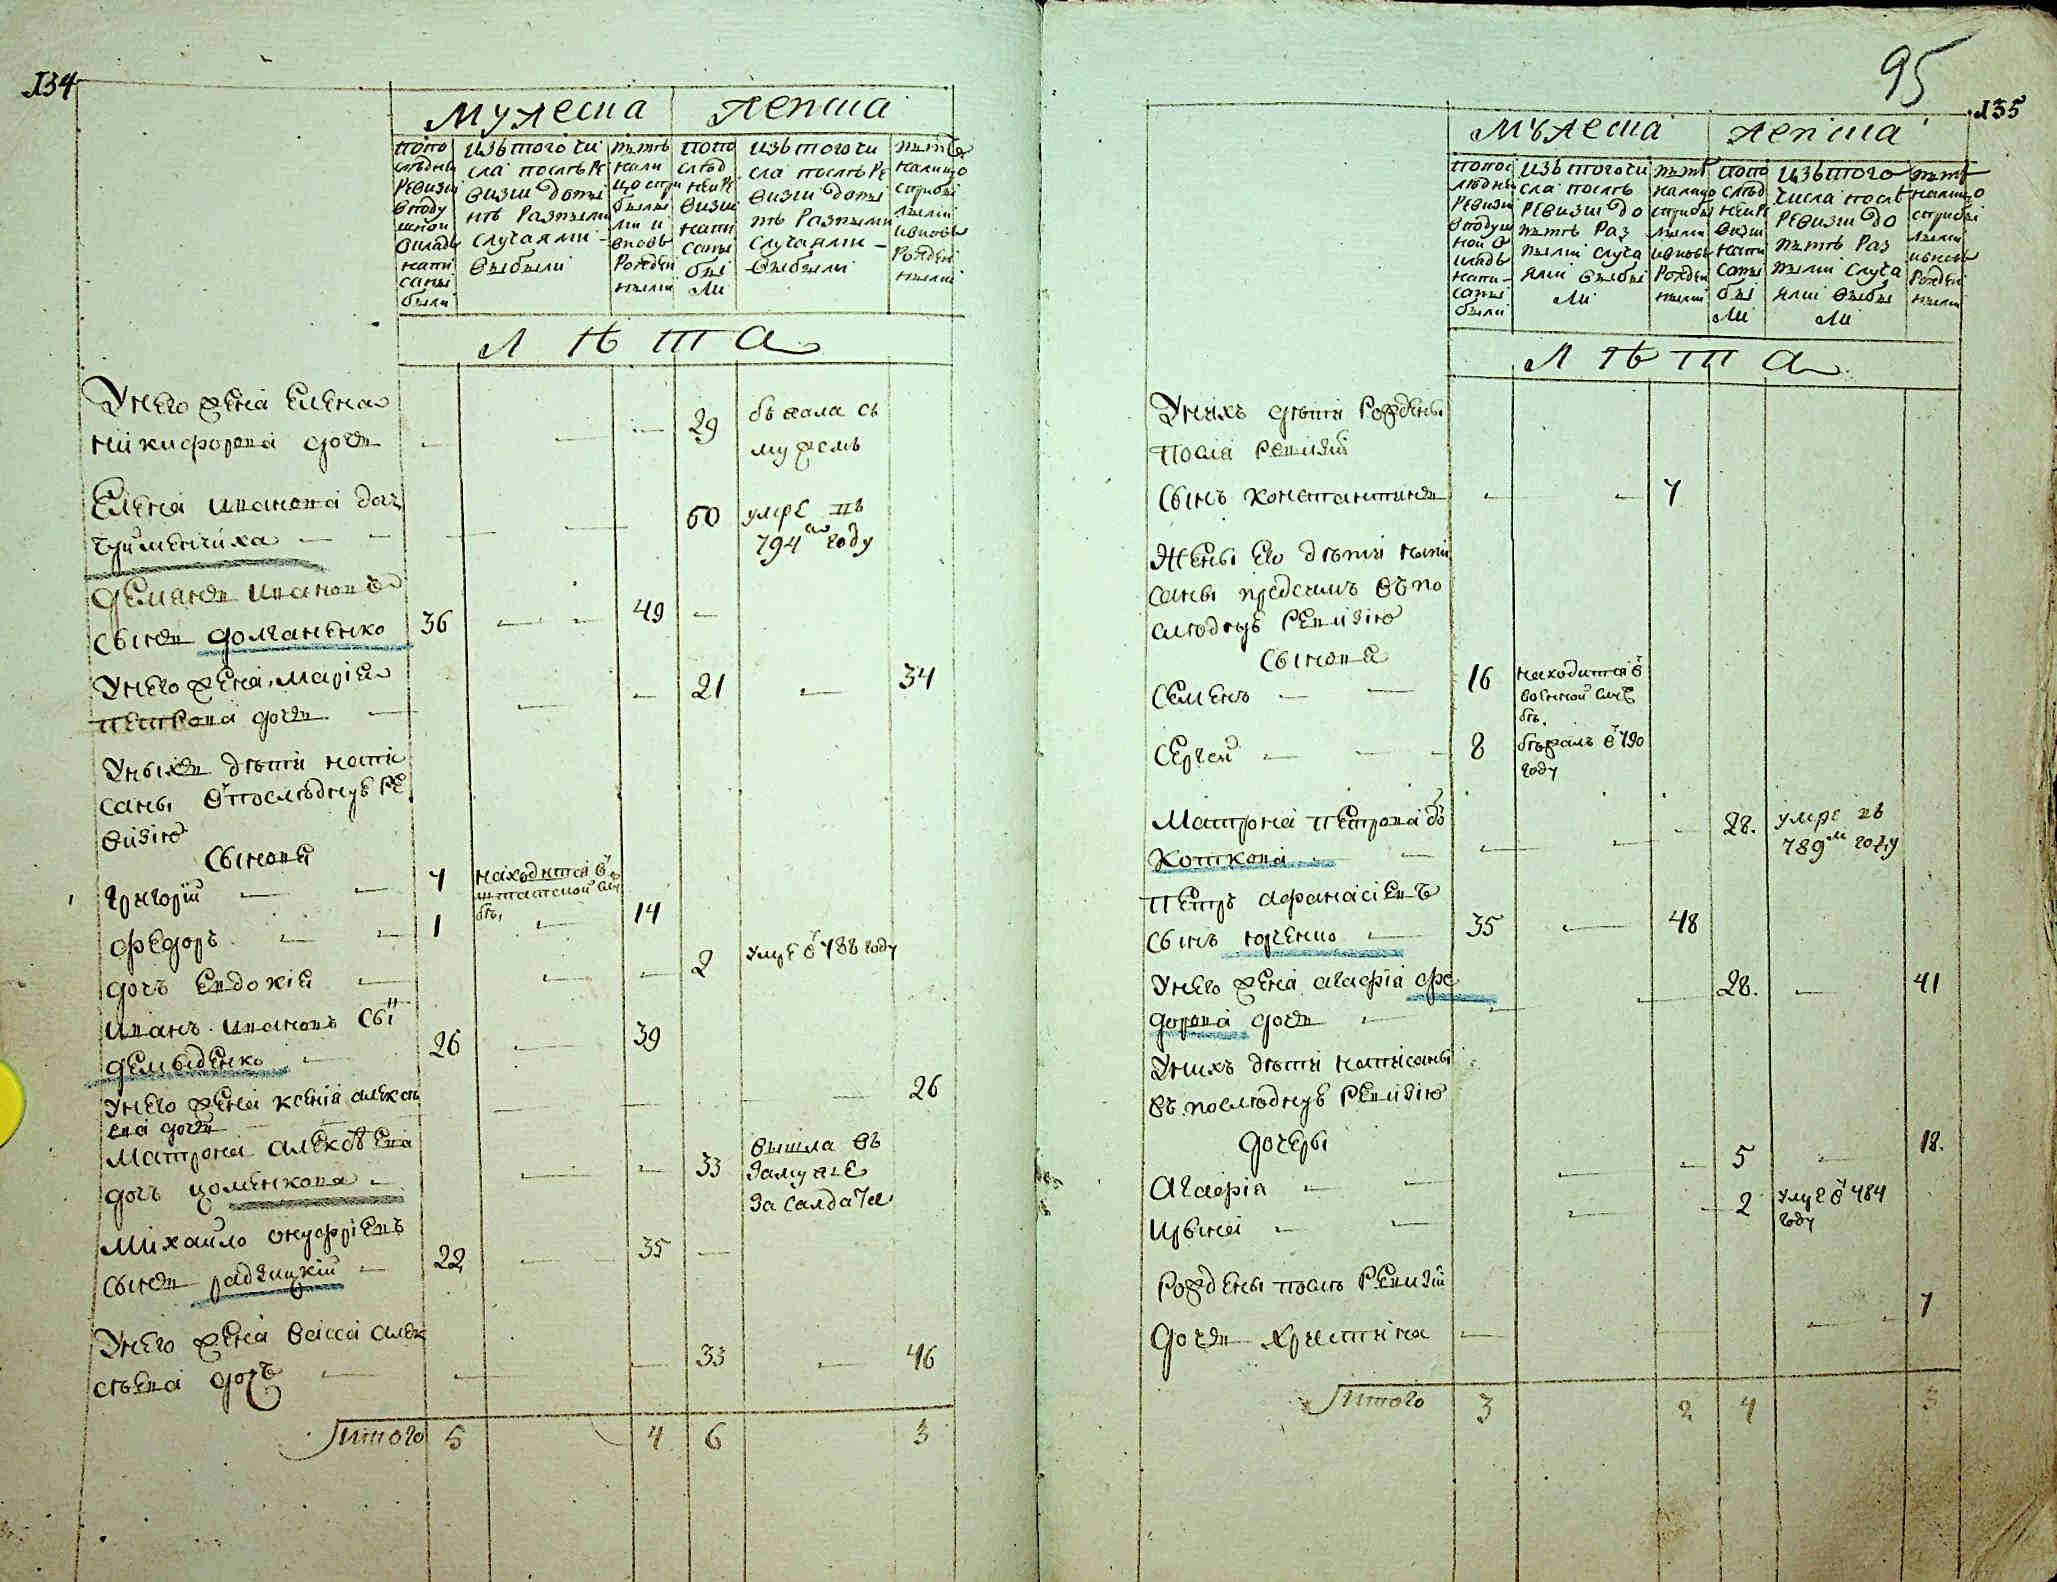 134
Мужеска
Женска
попо
следней
ревизии
в поду
шной
окладъ
напи
саны
были
изъ того чи
сла послѣ ре
визіи доны
нѣ разными
случаями
выбыли
нынѣ
нали
цо съ при
былы
ми и
вновь
рожден
ными
попо
слѣд
ней ре
визіи
напи
саны
бы
ли
изъ того чи
сла послѣ ре
визіи доны
нѣ разными
случаями
выбыли
нынѣ
налицо
съ прибы
лыми
и вновь
рожден
ными
Лѣта
У него жена Елена
Никифорова дочь
29
бежала съ
мужемъ
Елена Иванова доч
60
умре въ
794 м году
Демьян Ивановъ
сынъ Долганенко
36
49
У него жена Марія
Петрова дочь
21
34
У них дети напи
саны в последную ре
визию
Сыновя
Григорий
7
находится в
штатской слу
жбе,
Федоръ
1
14
дочъ Евдокия
2
умре в 788 году
Иванъ Ивановъ сы
Демыденко
26
39
У него жена Ксения Алексѣ
ева дочь
26
Матрона Алексѣева
дочъ Цоменкова
33
вышла въ
замуже
за салдата
Михайло Онуфріевъ
сынъ Радзицкий
22
35
У него жена Васса Алек
сѣева дочъ
33
46
Итого 5 4 6 3
95
135
Мужеска
Женска
попос
ледней
ревизи
в подуш
ной о
кладъ
напи
саны
были
изъ того чи
сла послѣ
ревизии до
нынѣ раз
ными случа
ями выбы
ли
нынѣ
налицо
съ прибы
лыми
и вновь
рожден
ными
попо
слѣд
ней ре
визіи
напи
саны
бы
ли
изъ того
числа послѣ
ревизіи до
нынѣ раз
ными случа
ями выбы
ли
нынѣ
налицо
съ прибы
лыми
и вновь
рожден
ными
Лѣта
У нихъ дети рождены
посла ревизий
сынъ Константинъ
7
Жены его дѣти напи
саны пре семъ въ по
следную ревизию
Сыновя
Семенъ
16
находится в
военной служ
бѣ.
Сергей
8
бѣжалъ в 790
году
Матрона Петрова до
Коткова
28.
умре въ
789 м году
Петръ Афанасіевъ
сынъ Юрченко
35
48
У него жена Агафия Фе
дорова дочь
28.
41
У нихъ дети написаны
въ последную ревизию
Дочеры
Агафия
5
18.
Ирына
2
умре в 784
году
Рождены послѣ ревизий
Дочь Христина
7
Итого 3 2 4 3